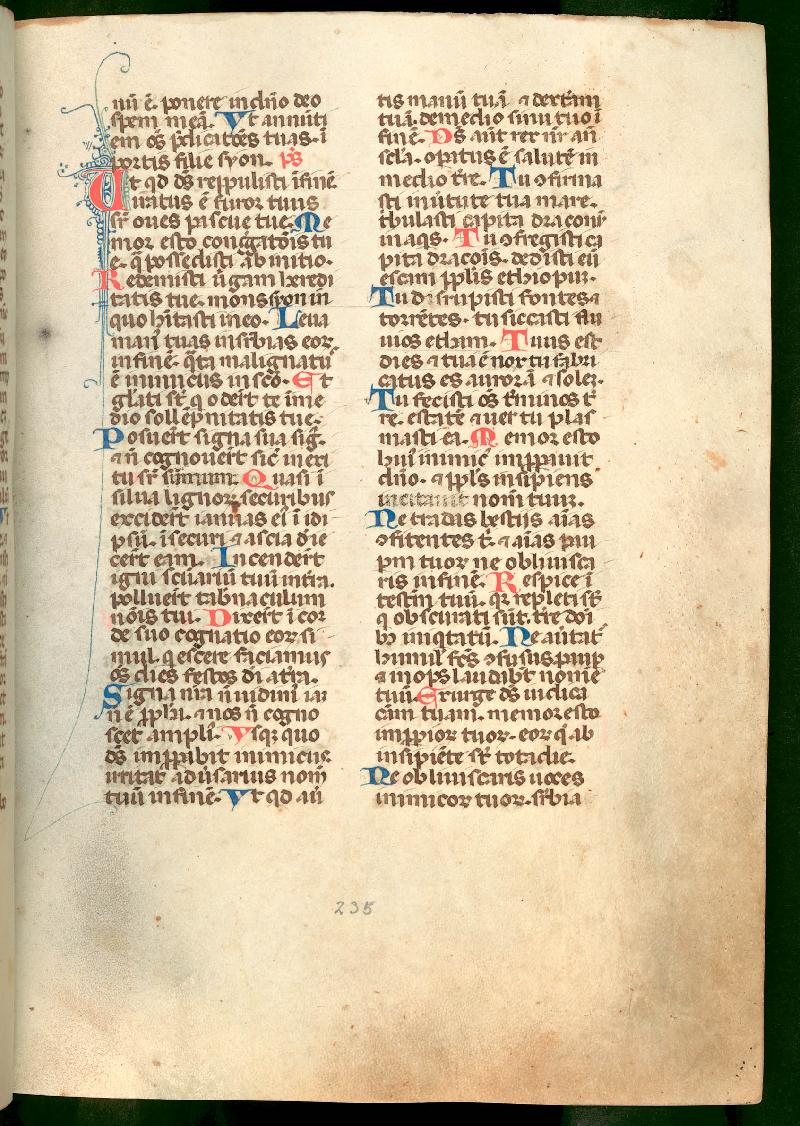 nū ē. ponere in dño deo
spem meā. Vt annūti
em oс̄ p̄dicatōes tuas. ī
portis filie syon. ps̄
Ut qd dс̄ reppulisti ī finē.
iratus ē furor tuus
sr̄ oues pascue tue. Me
mor esto cōggatōis tu
e. q̄ possedisti ab initio.
Redemisti ūgam heredi
tatis tue. mons syon in
quo hītasti in eo. Leua
man̄ tuas in suꝑbias eoꝝ
in finē. q̄ta malignatu᷒
ē inimicus in scō. Et
gl̄ati sr̄ q oderr̄t te ī me
dio sollēpnitatis tue.
Posuer̄t signa sua sig.
⁊ n̄ cognouer̄t sic̄ in exi
tu sr̄ summum. Quasi ī
silua lignoꝝ securibus
excider̄t ianuas ei᷒ ī idi
psū. ī securi ⁊ ascia deie
cer̄t eam. Incender̄t
igni scūariū tuū in tr̄a.
polluer̄t tab̄naculum
nōis tui. Dixer̄t ī cor
de suo cognatio eoꝝ si
mul. q̄escere faciamus
oс̄ dies festos dī a tr̄a.
Signa nr̄a n̄ vidim᷒ iaꝫ
n̄ ē ꝓph̄a. ⁊ nos n̄ cogno
scet ampli᷒. Vsqꝫ quo
dс̄ imꝓpabit inimicus
irritat aduersarius nom̄
tuū in finē. Vt qd aū
tis manū tuā ⁊ dextām
tuā. de medio sinu tuo ī
finē. Dс̄ aūt rex nr̄ an̄
sc̄la. opatus ē salutē in
medio tr̄e. Tu ꝯfirma
sti in ūtute tua mare.
t̄bulasti capita draconū
in aqs. Tu ꝯfregisti ca
pita dracōis. dedisti eū
escam pp̄lis ethiopuꝫ.
Tu disrupisti fontes ⁊
torrētes. tu siccasti flu
uios etham. Tuus est
dies ⁊ tua ē nox tu fabri
catus es aurorā ⁊ soleꝫ.
Tu fecisti oс̄ t̄minos t̄
re. estatē ⁊ uer tu plas
masti ea. Memor esto
hui᷒ inimic᷒ imꝓpauit
dño. ⁊ pp̄ls insipiens
incitauit nom̄ tuuꝫ.
Ne tradas bestijs aīas
ꝯfitentes t̄. ⁊ aīas pau
pm tuoꝝ ne obliuisca
ris in finē. Respice ī
testm̄ tuū. qꝫ repleti sr̄
q obscurati sūt. tr̄e dom̄
b᷒ iniqtatū. Ne aūtat᷒
humil᷒ fc̄s ꝯfusus paup
⁊ inops laudabūt nom̄e
tuū. Exurge dс̄ iudica
cām tuam. memor esto
imꝓpioꝝ tuoꝝ. eoꝝ q̄ ab
insipiēte sr̄ tota die.
Ne obliuiscaris uoces
inimicoꝝ tuoꝝ. suꝑbia
235